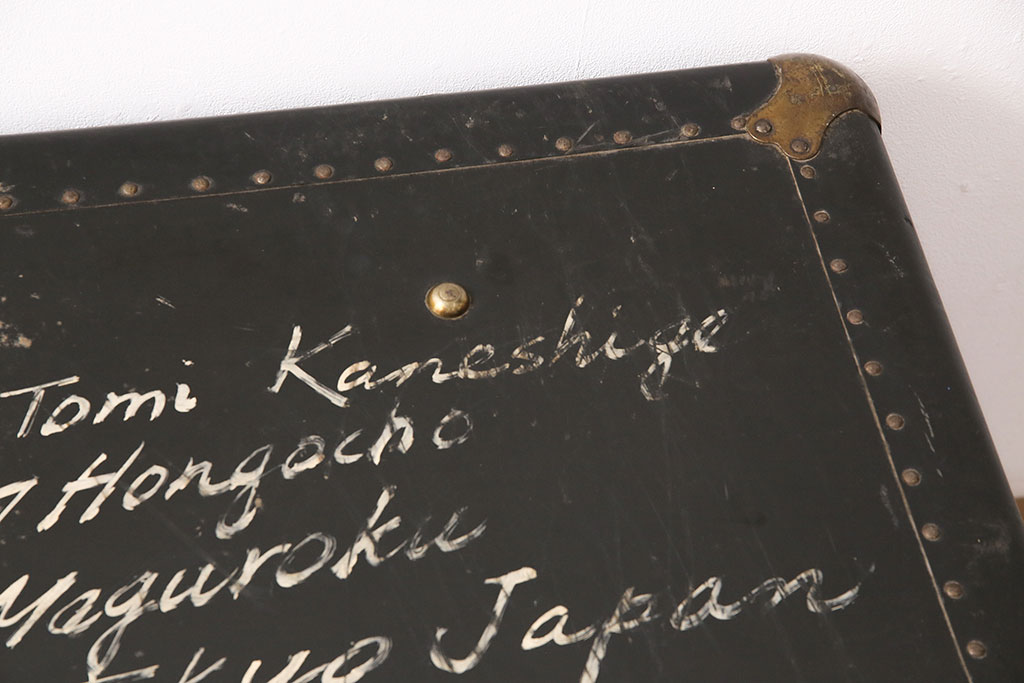 Tomi Kaneshige
7 Hongocho
Meguroku
Tokyo Japan